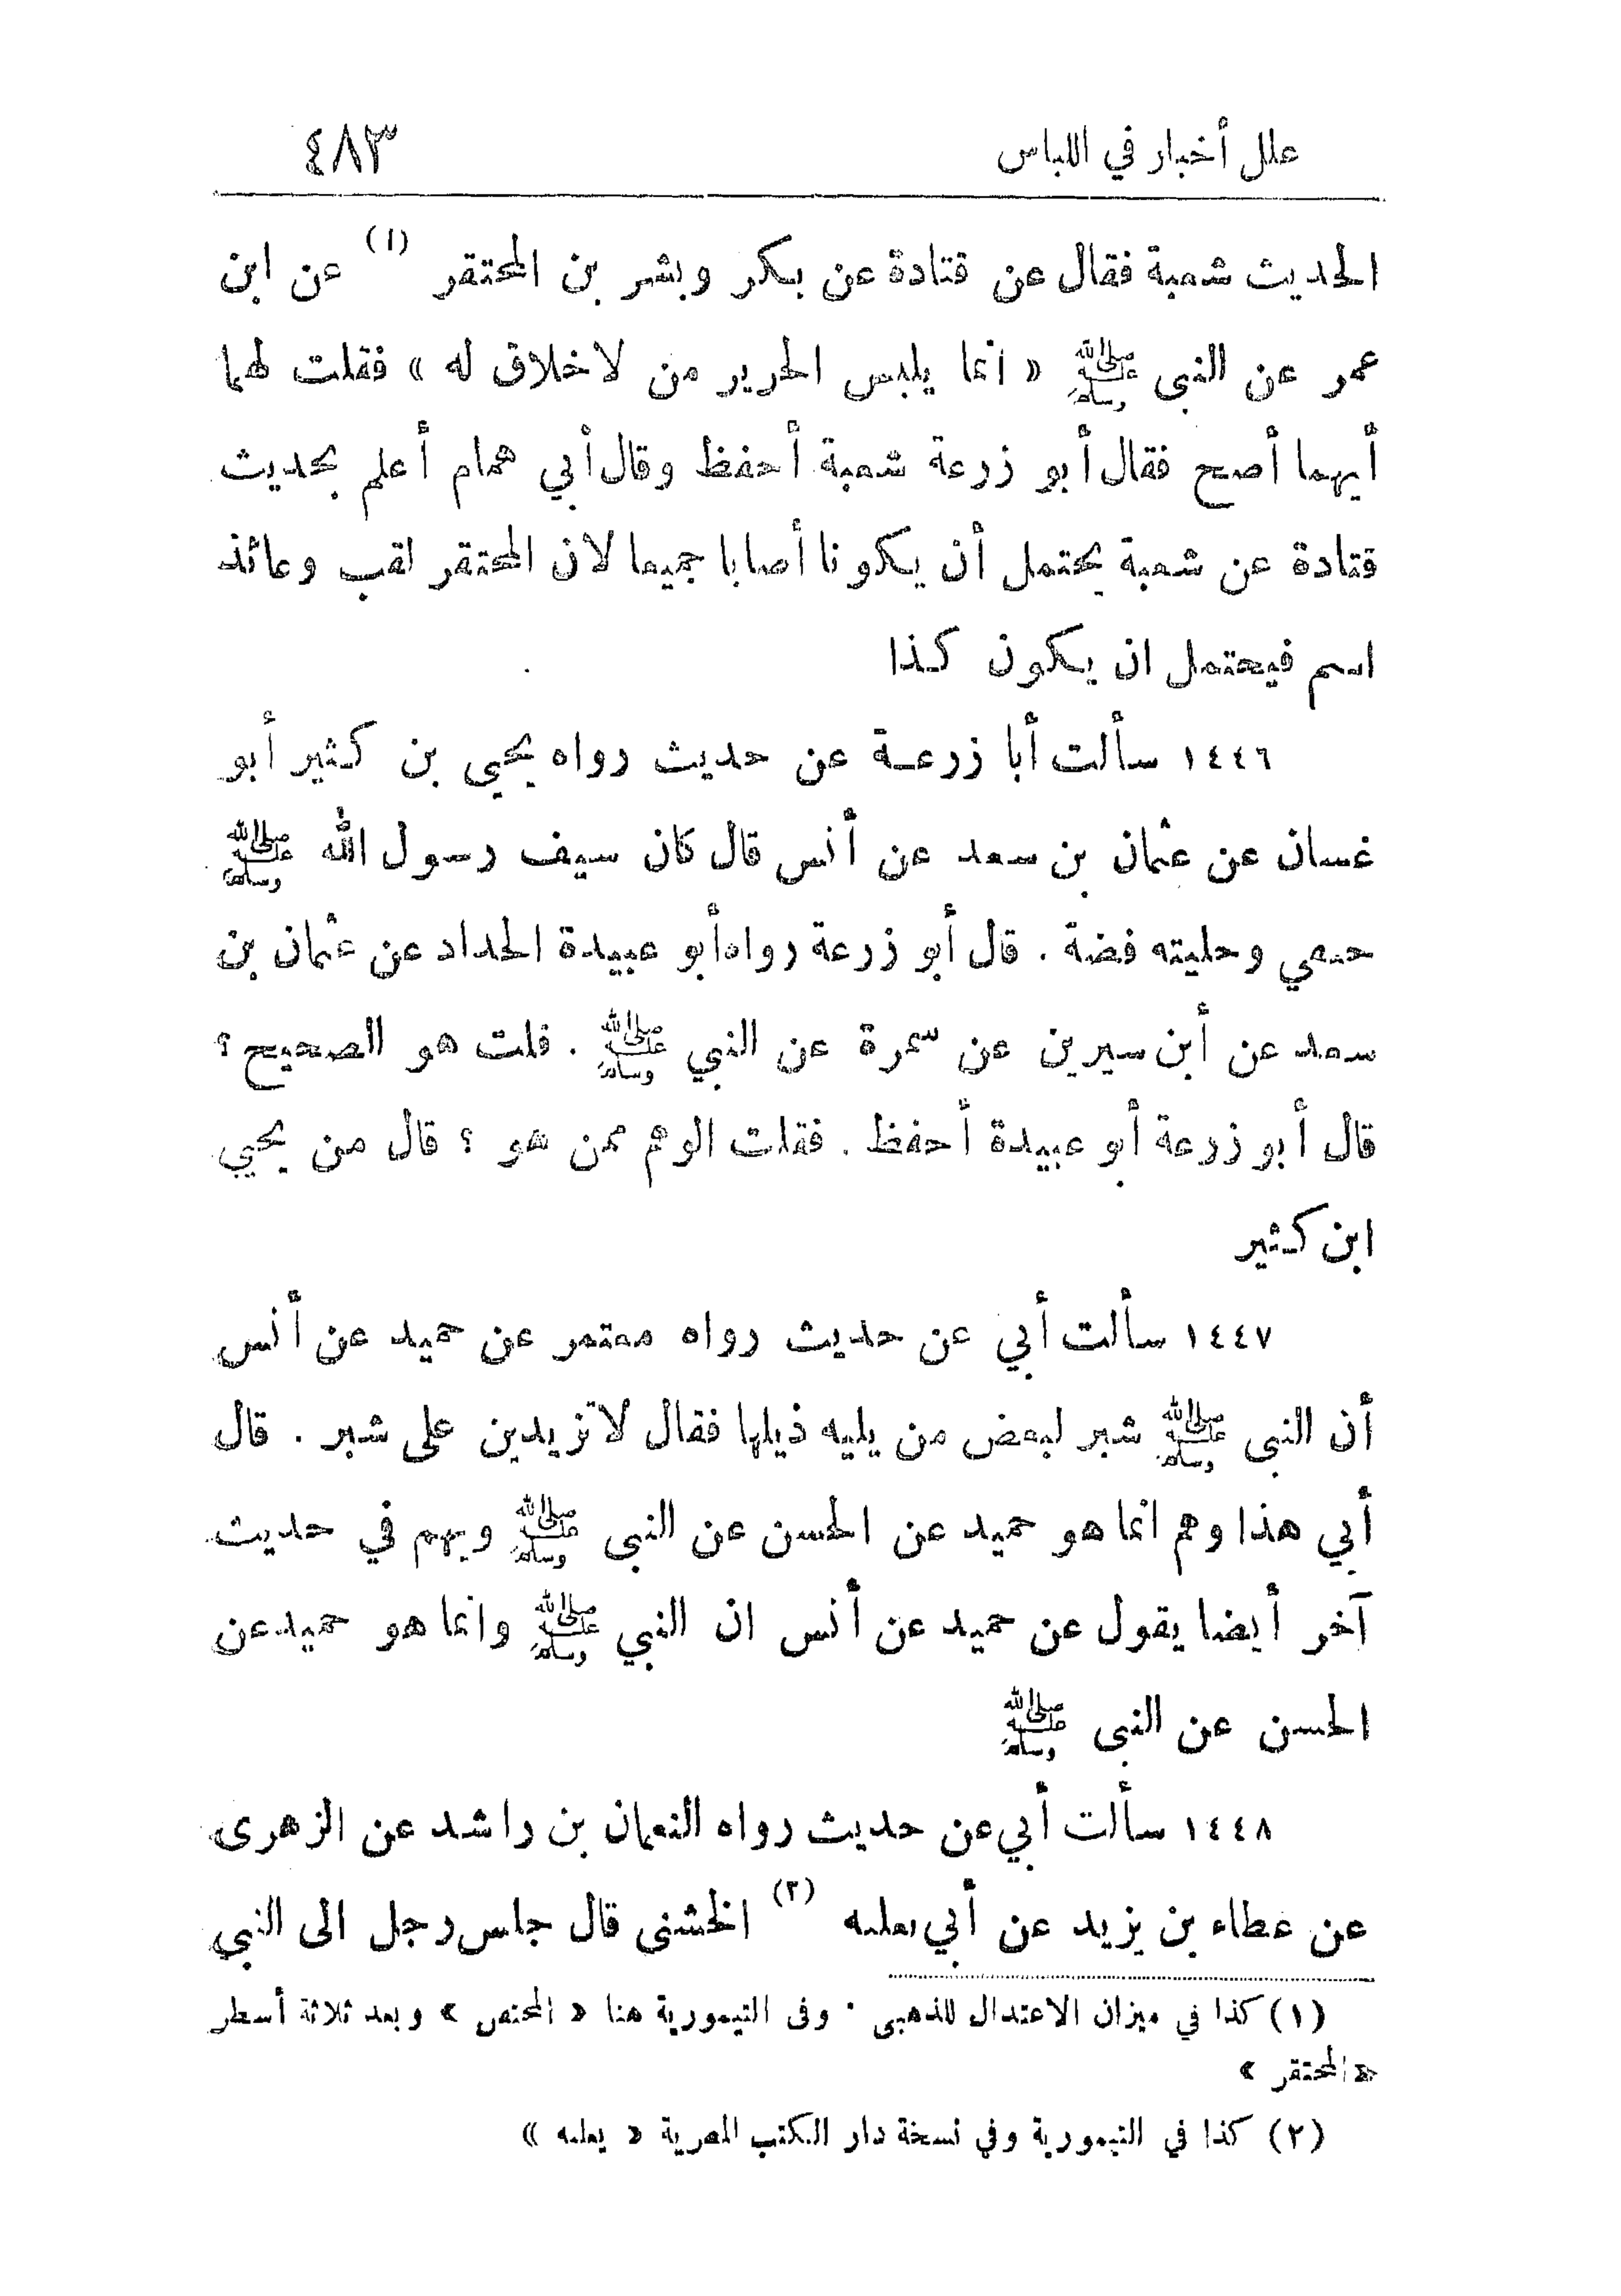 علل أخبار في اللباس ٤٨٣
الحديث شعبة فقال عن قتادة عن بكر وبشر بن المحتقر (١) عن ابن
عمر عن النبي ﷺ « انما يلبس الحرير من لا خلاق له » فقلت لهما
أيهما أصح فقال أبو زرعة شعبة أحفظ وقال أبي همام أعلم بحديث
قتادة عن شعبة يحتمل أن يكونا أصابا جميعا لان المحتقر لقب وعائذ
اسم فيحتمل ان يكون كذا
١٤٤٦ سألت أبا زرعة عن حديث رواه يحيى بن كثير أبو
غسان عن عثمان بن سعد عن أنس قال كان سيف رسول الله ﷺ
حنفي وحليته فضة . قال أبو زرعة رواه أبو عبيدة الحداد عن عثمان بن
سعد عن أبن سيرين عن سمرة عن النبي ﷺ . قلت هو الصحيح ؟
قال أبو زرعة أبو عبيدة أحفظ . فقلت الوهم ممن هو ؟ قال من يحيي
ابن كثير
١٤٤٧ سألت أبي عن حديث رواه معتمر عن حميد عن أنس
أن النبي ﷺ شبر لبعض من يليه ذيلها فقال لا تزيدين على شبر . قال
أبي هذا وهم انما هو حميد عن الحسن عن النبي ﷺ ويهم في حديث
آخر أيضا يقول عن حميد عن أنس ان النبي ﷺ وانما هو حميد عن
الحسن عن النبي ﷺ
١٤٤٨ سألت أبي عن حديث رواه النعمان بن راشد عن الزهرى
عن عطاء بن يزيد عن أبي (٢) الخشنى قال جلس رجل الى النبي
(١) كذا في ميزان الاعتدال للذهبى . وفى التيمورية هنا « المحتص » وبعد ثلاثة أسطر
« المحتقر »
(٢) كذا في التيمورية وفي نسخة دار الكتب المصرية « يعلمه »